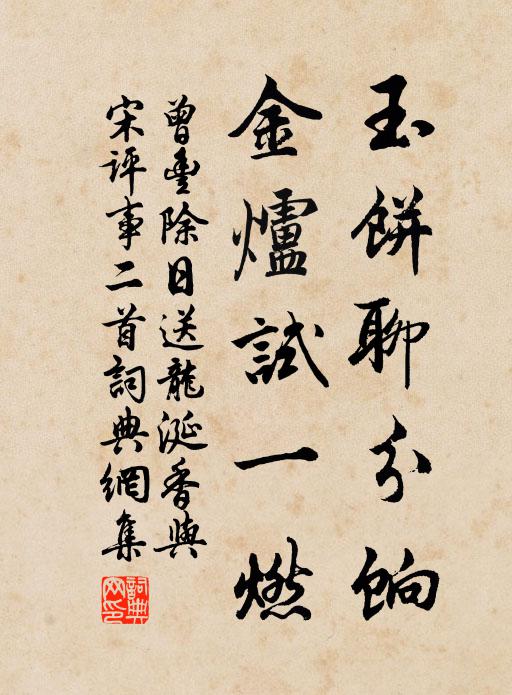 玉餅聊分餉
金爐試一燃
曾豐除日送龍涎香與
宋評事二首詞典網集
詞典网印